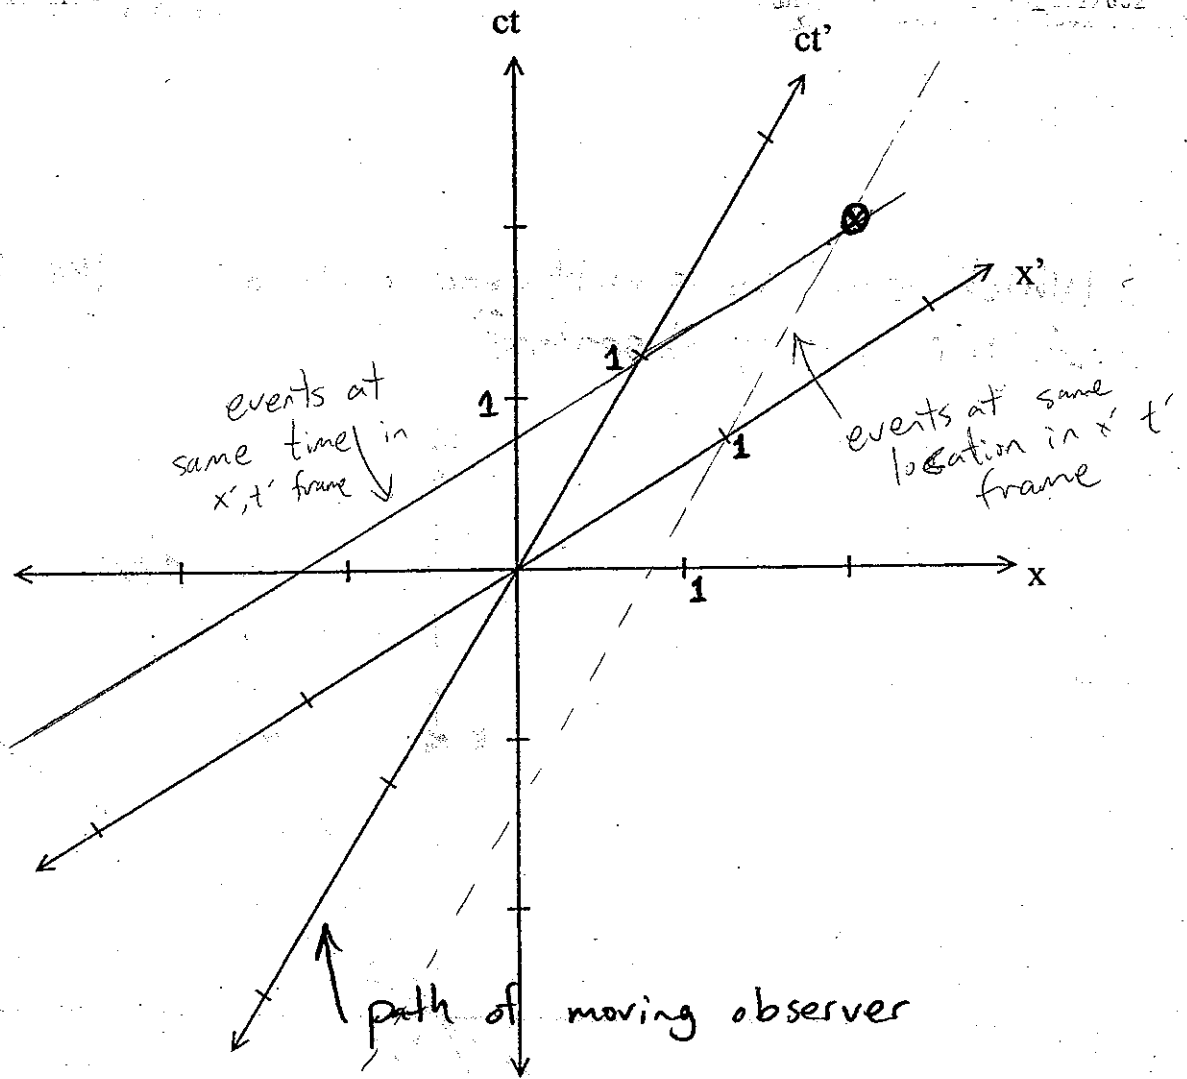 ct
ct'
x'
1
1
events at
same time in
x', t' frame
1
events at same
location in x' t'
frame
1
x
path of moving observer